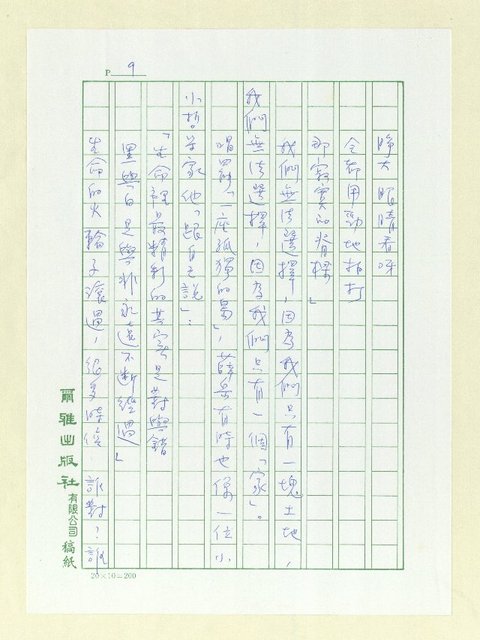 P 9
睜大眼睛看呀
全都用勁地拍打
那寂寞的脊樑」
我們無法選擇,因為我們只有一塊土地,
我們無法選擇,因為我們只有一個「家」。
唱罷「一座孤獨的島」,薛岳有時也像一位小
小哲学家他「跟自己說」:
「生命裡最精彩的其實是對與錯
黑與白是與非永遠不斷經過」
生命的火輪子滾過,很多時候 誰對?誰
爾雅出版社 有限公司 稿紙
20×10=200